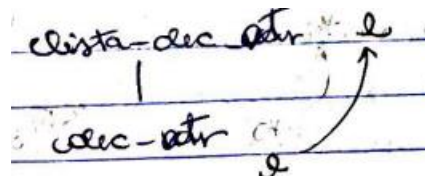 lista-dec_atr l
dec-atr
l